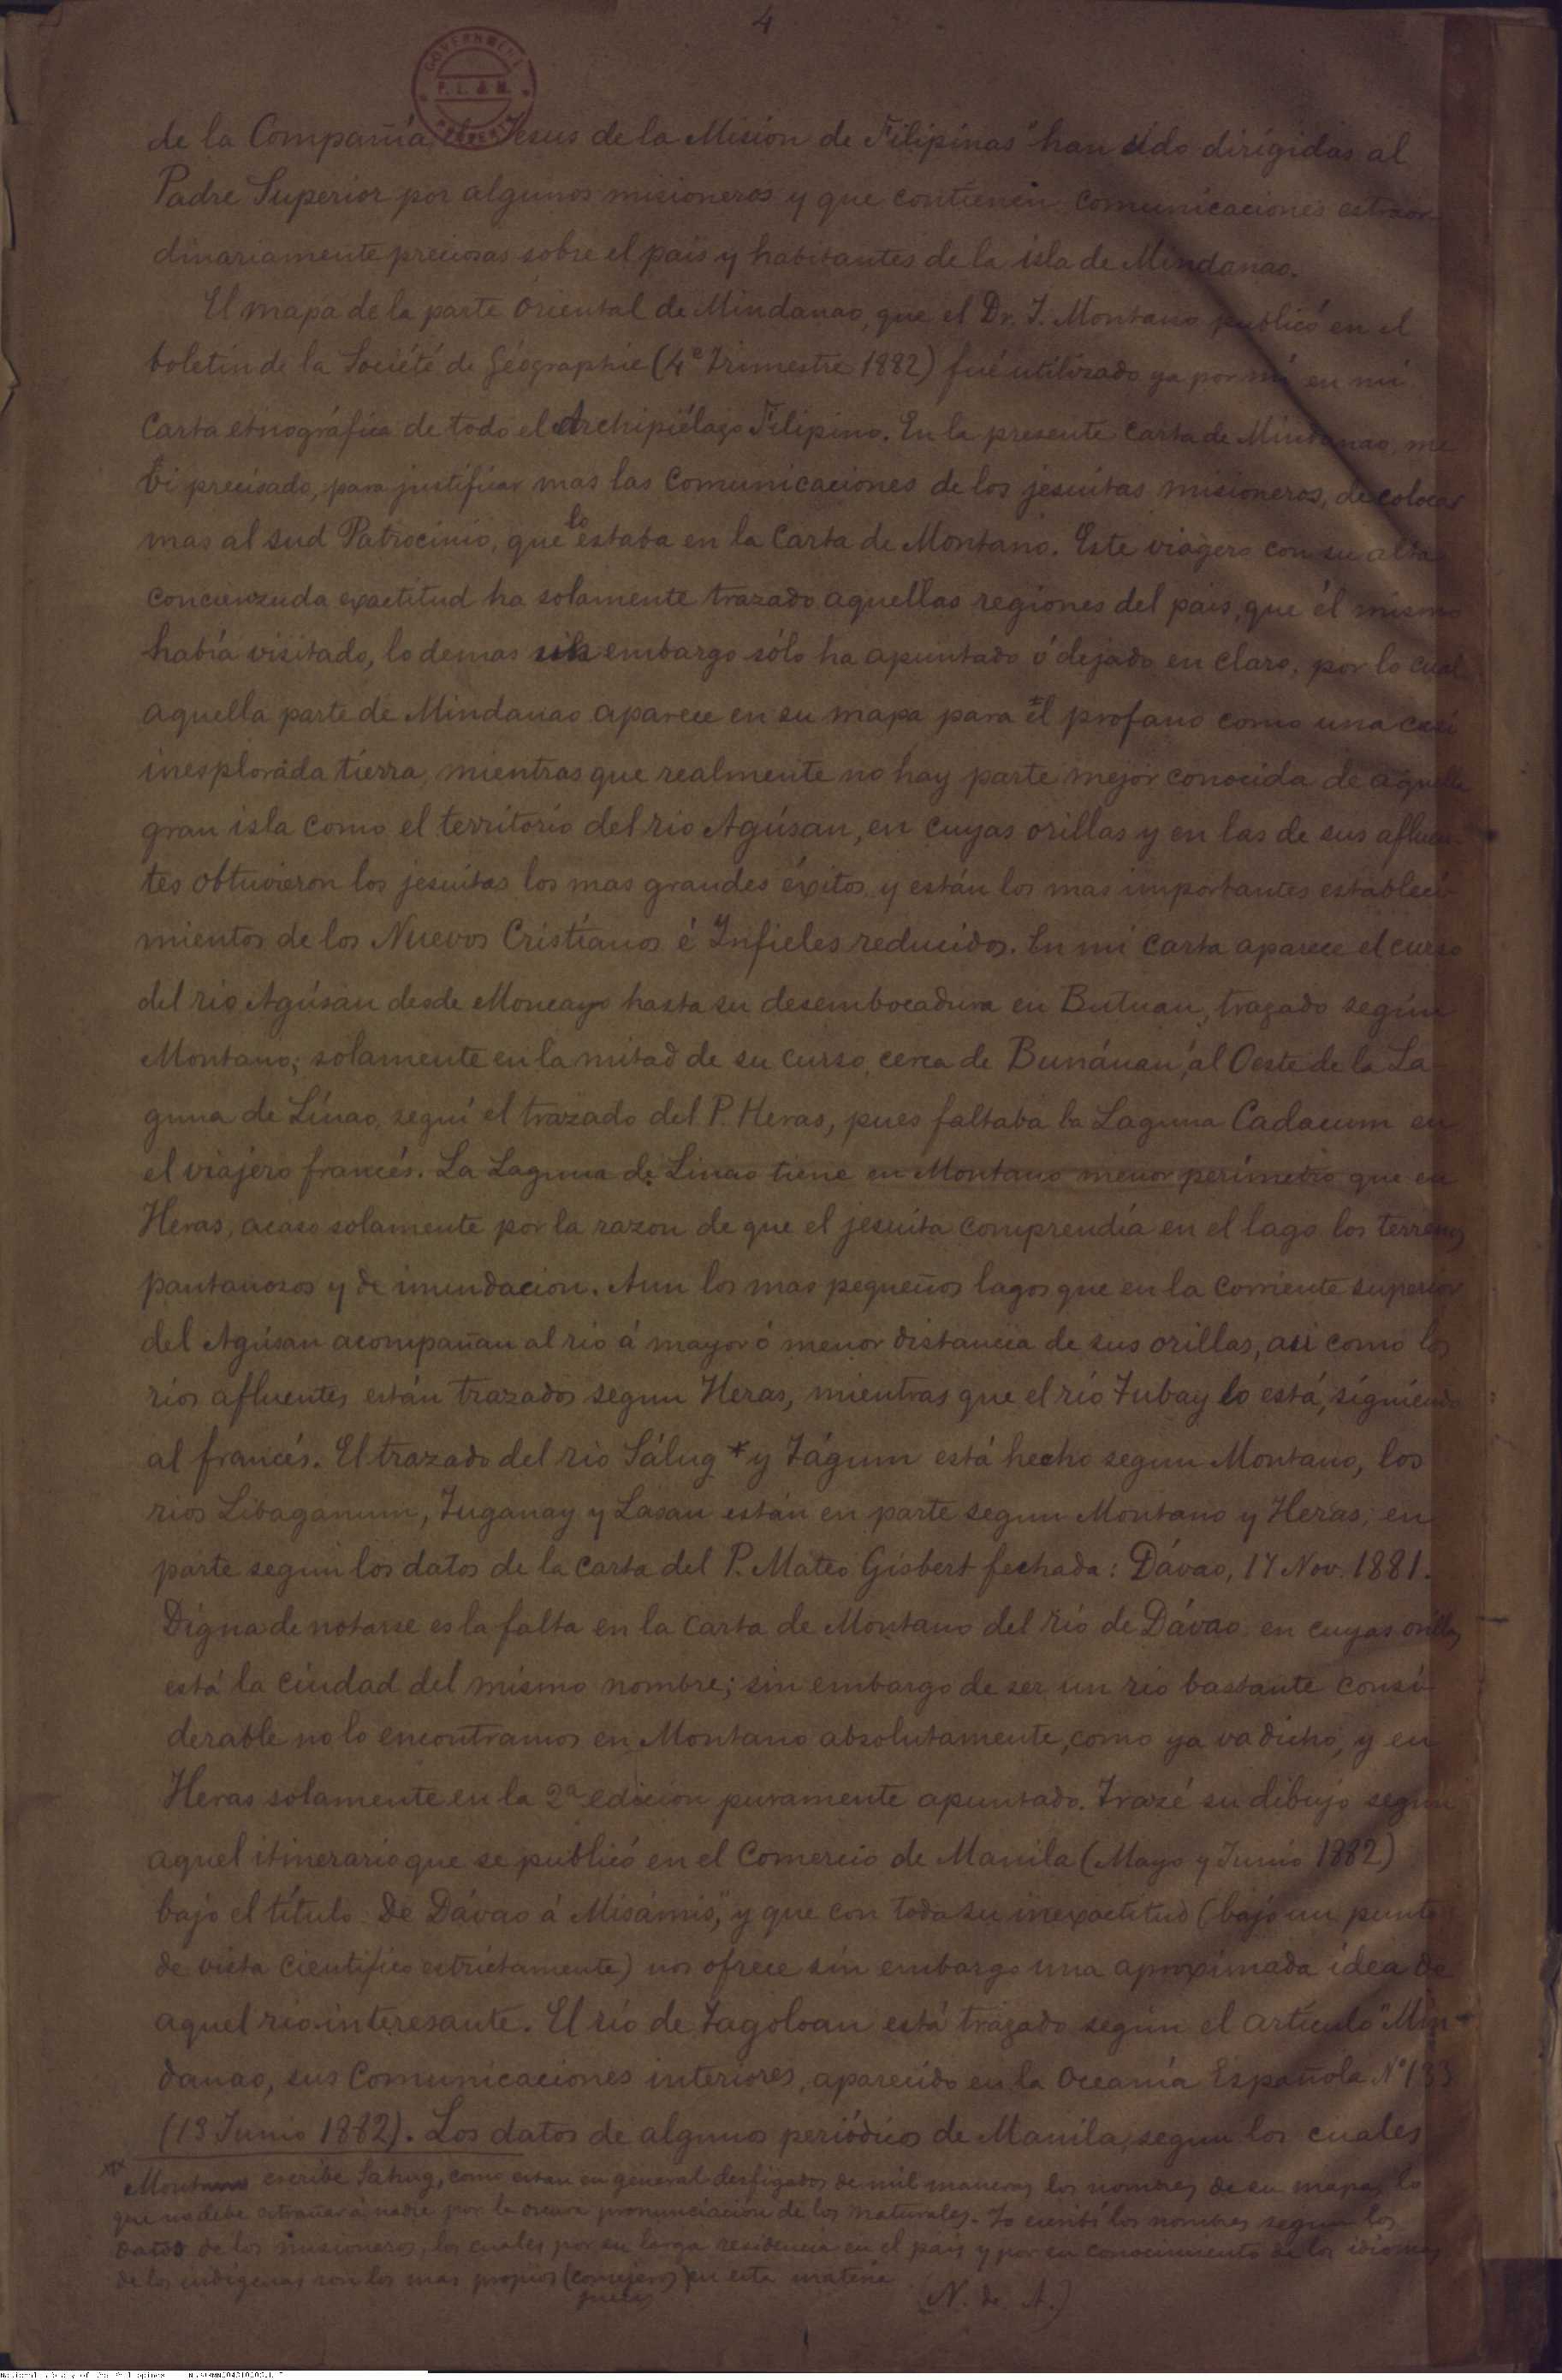 4
GOVERNMENT
P. L. & M.
PROPERTY
de la Compañía de Jesus de la Mision de Filipinas" han sido dirigidas al
Padre Superior por algunos misioneros y que contienen comunicaciones extraor-
dinariamente preciosas sobre el pais y habitantes de la isla de Mindanao.
El mapa de la parte Oriental de Mindanao, que el Dr. J. Montano publicó en el
boletin de la Société de Géographie (4º Trimestre 1882) fué utilizado ya por mí en mi
Carta etnográfica de todo el Archipiélago Filipino. En la presente Carta de Mindanao, me
vi precisado, para justificar mas las comunicaciones de los jesuitas misioneros, de colocar
mas al sud Patrocinio, que lo estaba en la Carta de Montano. Este viagero con su alta
concienzuda exactitud ha solamente trazado aquellas regiones del pais, que él mismo
había visitado, lo demas sin embargo sólo ha apuntado ó dejado en claro, por lo cual
aquella parte de Mindanao aparece en su mapa para el profano como una casi
inesplorada tierra, mientras que realmente no hay parte mejor conocida de aquella
gran isla como el territorio del rio Agúsan, en cuyas orillas y en las de sus afluen-
tes obtuvieron los jesuitas los mas grandes éxitos y están los mas importantes estableci-
mientos de los Nuevos Cristianos é Infieles reducidos. En mi Carta aparece el curso
del rio Agúsan desde Moncayo hasta su desembocadura en Butuan, trazado según
Montano; solamente en la mitad de su curso, cerca de Bunáuan, al Oeste de la La-
guna de Línao, seguí el trazado del P. Heras, pues faltaba la Laguna Cadocum en
el viajero francés. La Laguna de Linao tiene en Montano menor perímetro que en
Heras, acaso solamente por la razon de que el jesuita comprendía en el lago los terrenos
pantanosos y de inundacion. Aun los mas pequeños lagos que en la corriente superior
del Agúsan acompañan al rio á mayor ó menor distancia de sus orillas, asi como los
rios afluentes están trazados segun Heras, mientras que el rio Tubay lo está, siguiendo
al francés. El trazado del rio Sálug * y Tágum está hecho segun Montano, los
rios Libaganum, Tuganay y Lasan están en parte segun Montano y Heras, en
parte según los datos de la Carta del P. Mateo Gisbert fechada: Dávao, 17 Nov. 1881.
Digna de notarse es la falta en la Carta de Montano del rio de Dávao en cuyas orillas
está la ciudad del mismo nombre; sin embargo de ser un rio bastante consi-
derable no lo encontramos en Montano absolutamente, como ya va dicho, y en
Heras solamente en la 2ª edicion puramente apuntado. Trazé su dibujo según
aquel itinerario que se publicó en el Comercio de Manila (Mayo y Junio 1882)
bajo el título: De Dávao á Misámis," y que con toda su inexactitud (bajo un punto
de vista cientifico estrictamente) nos ofrece sin embargo una aproximada idea de
aquel rio interesante. El rio de Tagoloan está trazado según el artículo "Min-
danao, sus comunicaciones interiores, aparecido en la Oceanía Española Nº 133
(13 Junio 1882). Los datos de algunos periódicos de Manila, segun los cuales
* Montano escribe Sahug, como estan en general desfigados de mil maneras los nombres de su mapa, lo
que no debe estrañar á nadie por la oscura pronunciacion de los naturales. Yo escribí los nombres segun los
datos de los misioneros, los cuales por su larga residencia en el pais y por su conocimiento de los idiomas
de los indígenas son los mas propios (consejeros) en esta materia
jueces
(N. de A.)